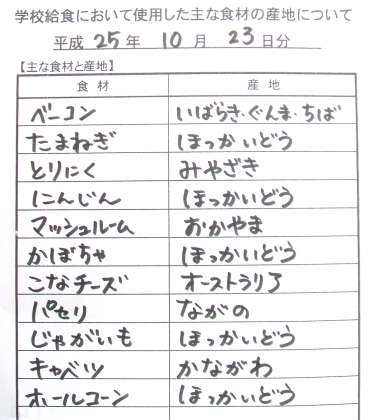 学校給食において使用した主な食材の産地について
平成 25 年 10 月 23 日分
【主な食材と産地】
食材 産地
ベーコン いばらき・ぐんま・ちば
たまねぎ ほっかいどう
とりにく みやざき
にんじん ほっかいどう
マッシュルーム おかやま
かぼちゃ ほっかいどう
こなチーズ オーストラリア
パセリ ながの
じゃがいも ほっかいどう
キャベツ かながわ
ホールコーン ほっかいどう